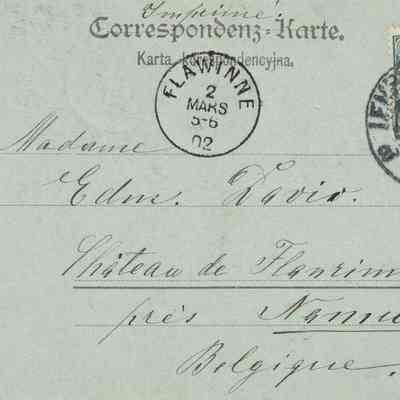 Imprimé.
Correspondenz-Karte.
Karta korespondencyjna.
FLAWINNE
2
MARS
5-6
02
Madame
Edm.
Château de
près Namu
Belgique.